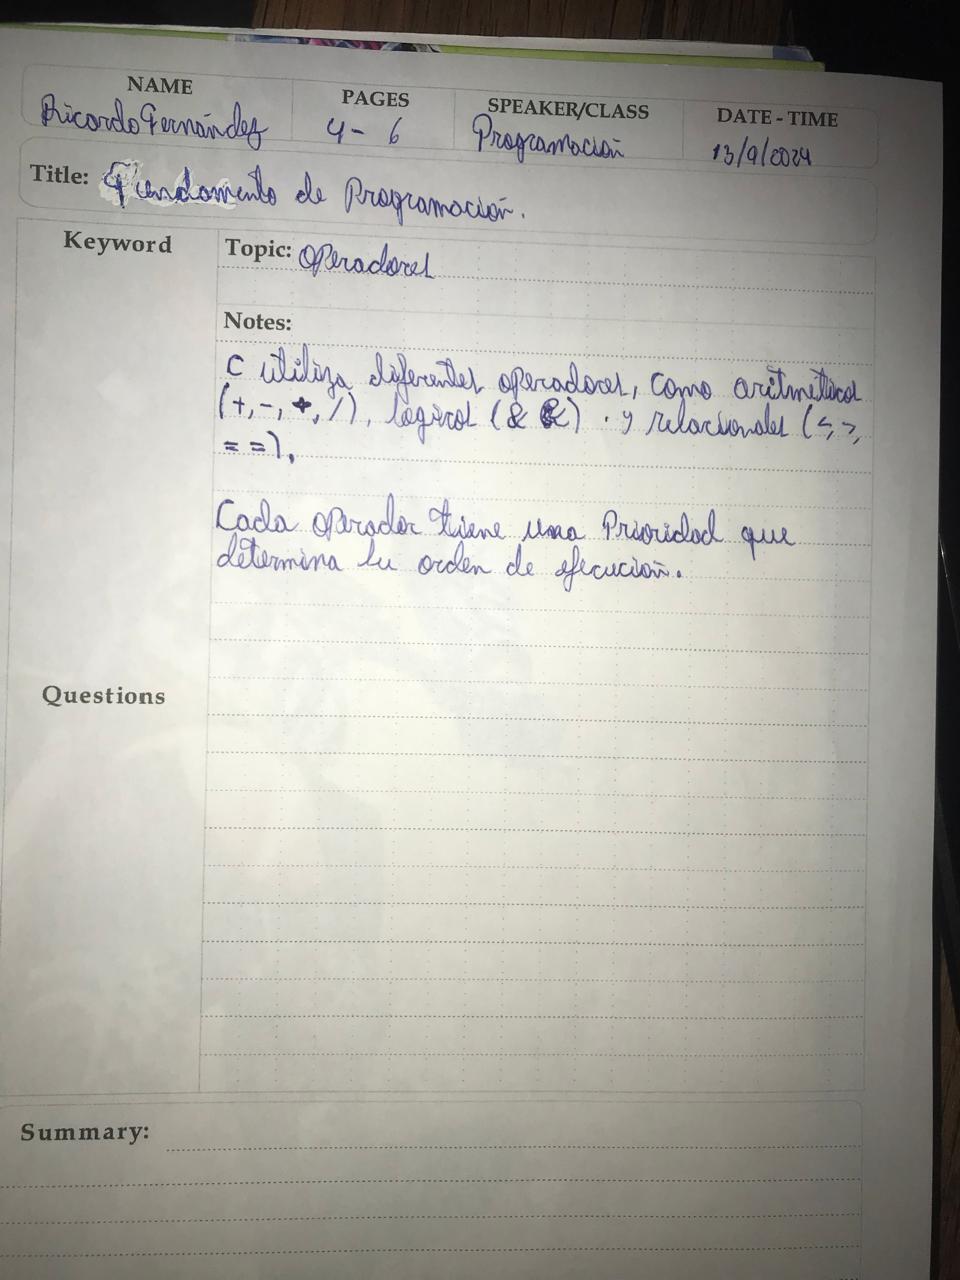 NAME PAGES SPEAKER/CLASS DATE - TIME
Ricardo Fernández 4 - 6 Programación 13/9/2024
Title: Fundamento de Programación.
Keyword
Topic: Operadores
Notes:
C utiliza diferentes operadores, como aritmeticos
(+, -, *, /), logicos (& &) . y relacionales (<, >,
= =).
Cada operador tiene una Prioridad que
determina su orden de ejecución.
Questions
Summary: